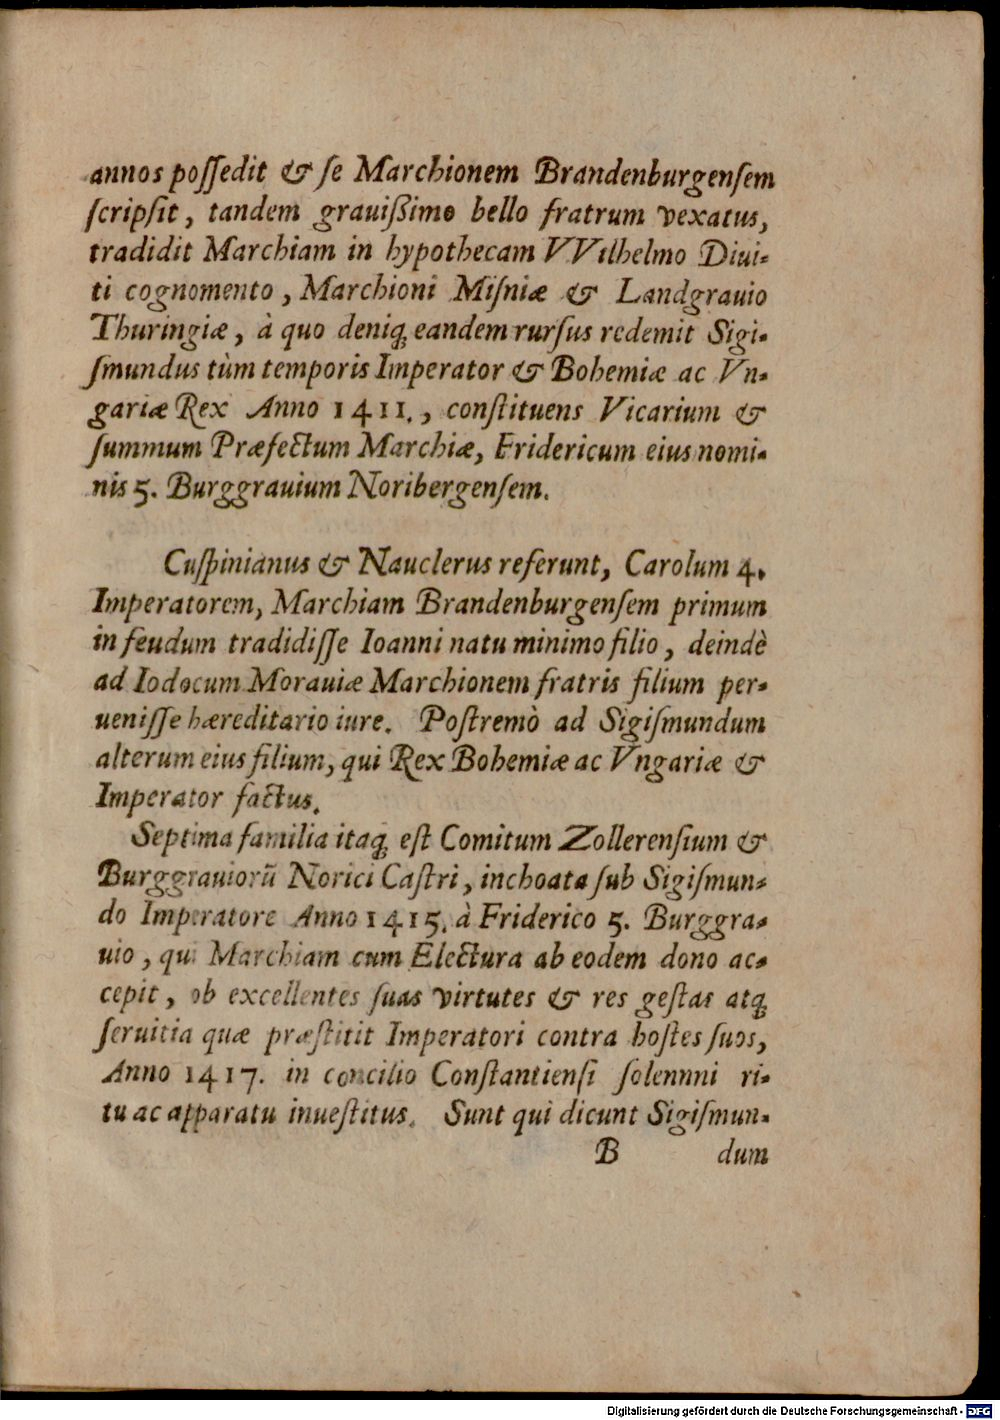 annos poſſedit & ſe Marchionem Brandenburgenſem
ſcripſit, tandem grauißimo bello fratrum vexatus,
tradidit Marchiam in hypothecam VVilhelmo Diui-
ti cognomento, Marchioni Miſniæ & Landgrauio
Thuringiæ, à quo deniq́; eandem rurſus redemit Sigi-
ſmundus tùm temporis Imperator & Bohemiæ ac Vn-
gariæ Rex Anno 1411., conſtituens Vicarium &
ſummum Præfectum Marchiæ, Fridericum eius nomi-
nis 5. Burggrauium Noribergenſem.
Cuſpinianus & Nauclerus referunt, Carolum 4.
Imperatorem, Marchiam Brandenburgenſem primum
in feudum tradidiſſe Ioanni natu minimo filio, deindè
ad Iodocum Morauiæ Marchionem fratris filium per-
ueniſſe hæreditario iure. Poſtremò ad Sigiſmundum
alterum eius filium, qui Rex Bohemiæ ac Vngariæ &
Imperator factus.
Septima familia itaq́; eſt Comitum Zollerenſium &
Burggrauiorū Norici Caſtri, inchoata ſub Sigiſmun-
do Imperatore Anno 1415. à Friderico 5. Burggra-
uio, qui Marchiam cum Electura ab eodem dono ac-
cepit, ob excellentes ſuas virtutes & res geſtas atq́;
ſeruitia quæ præſtitit Imperatori contra hoſtes ſuos,
Anno 1417. in concilio Conſtantienſi ſolennni ri-
tu ac apparatu inueſtitus. Sunt qui dicunt Sigiſmun-
B dum
Digitalisierung gefördert durch die Deutsche Forschungsgemeinschaft - DFG